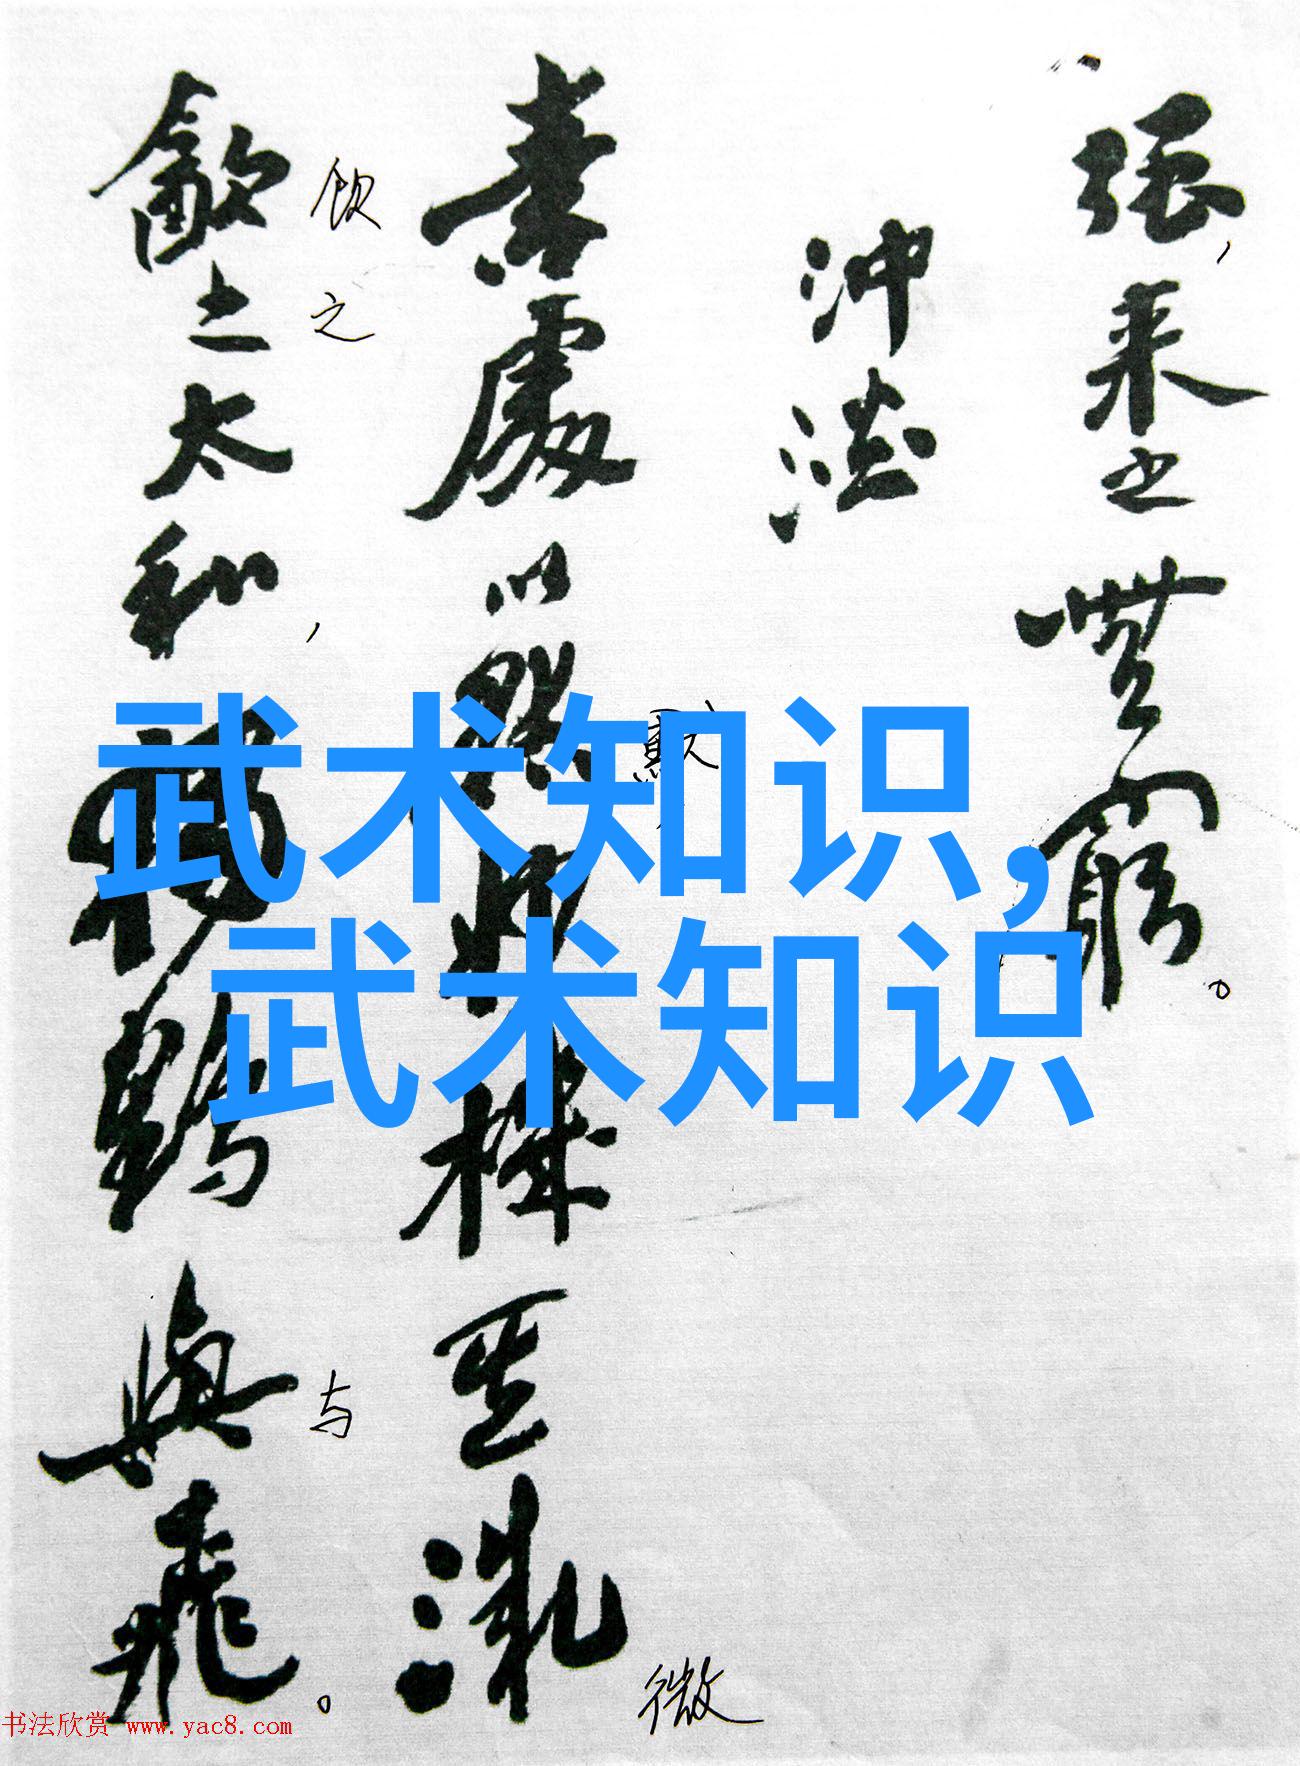 强,来之無窮。
沖澹
素處以默妙機其微
默
微
飲之太和,獨鶴與飛。
饮之
与
武术知识,
武术知识
书法欣赏 www.yac8.com